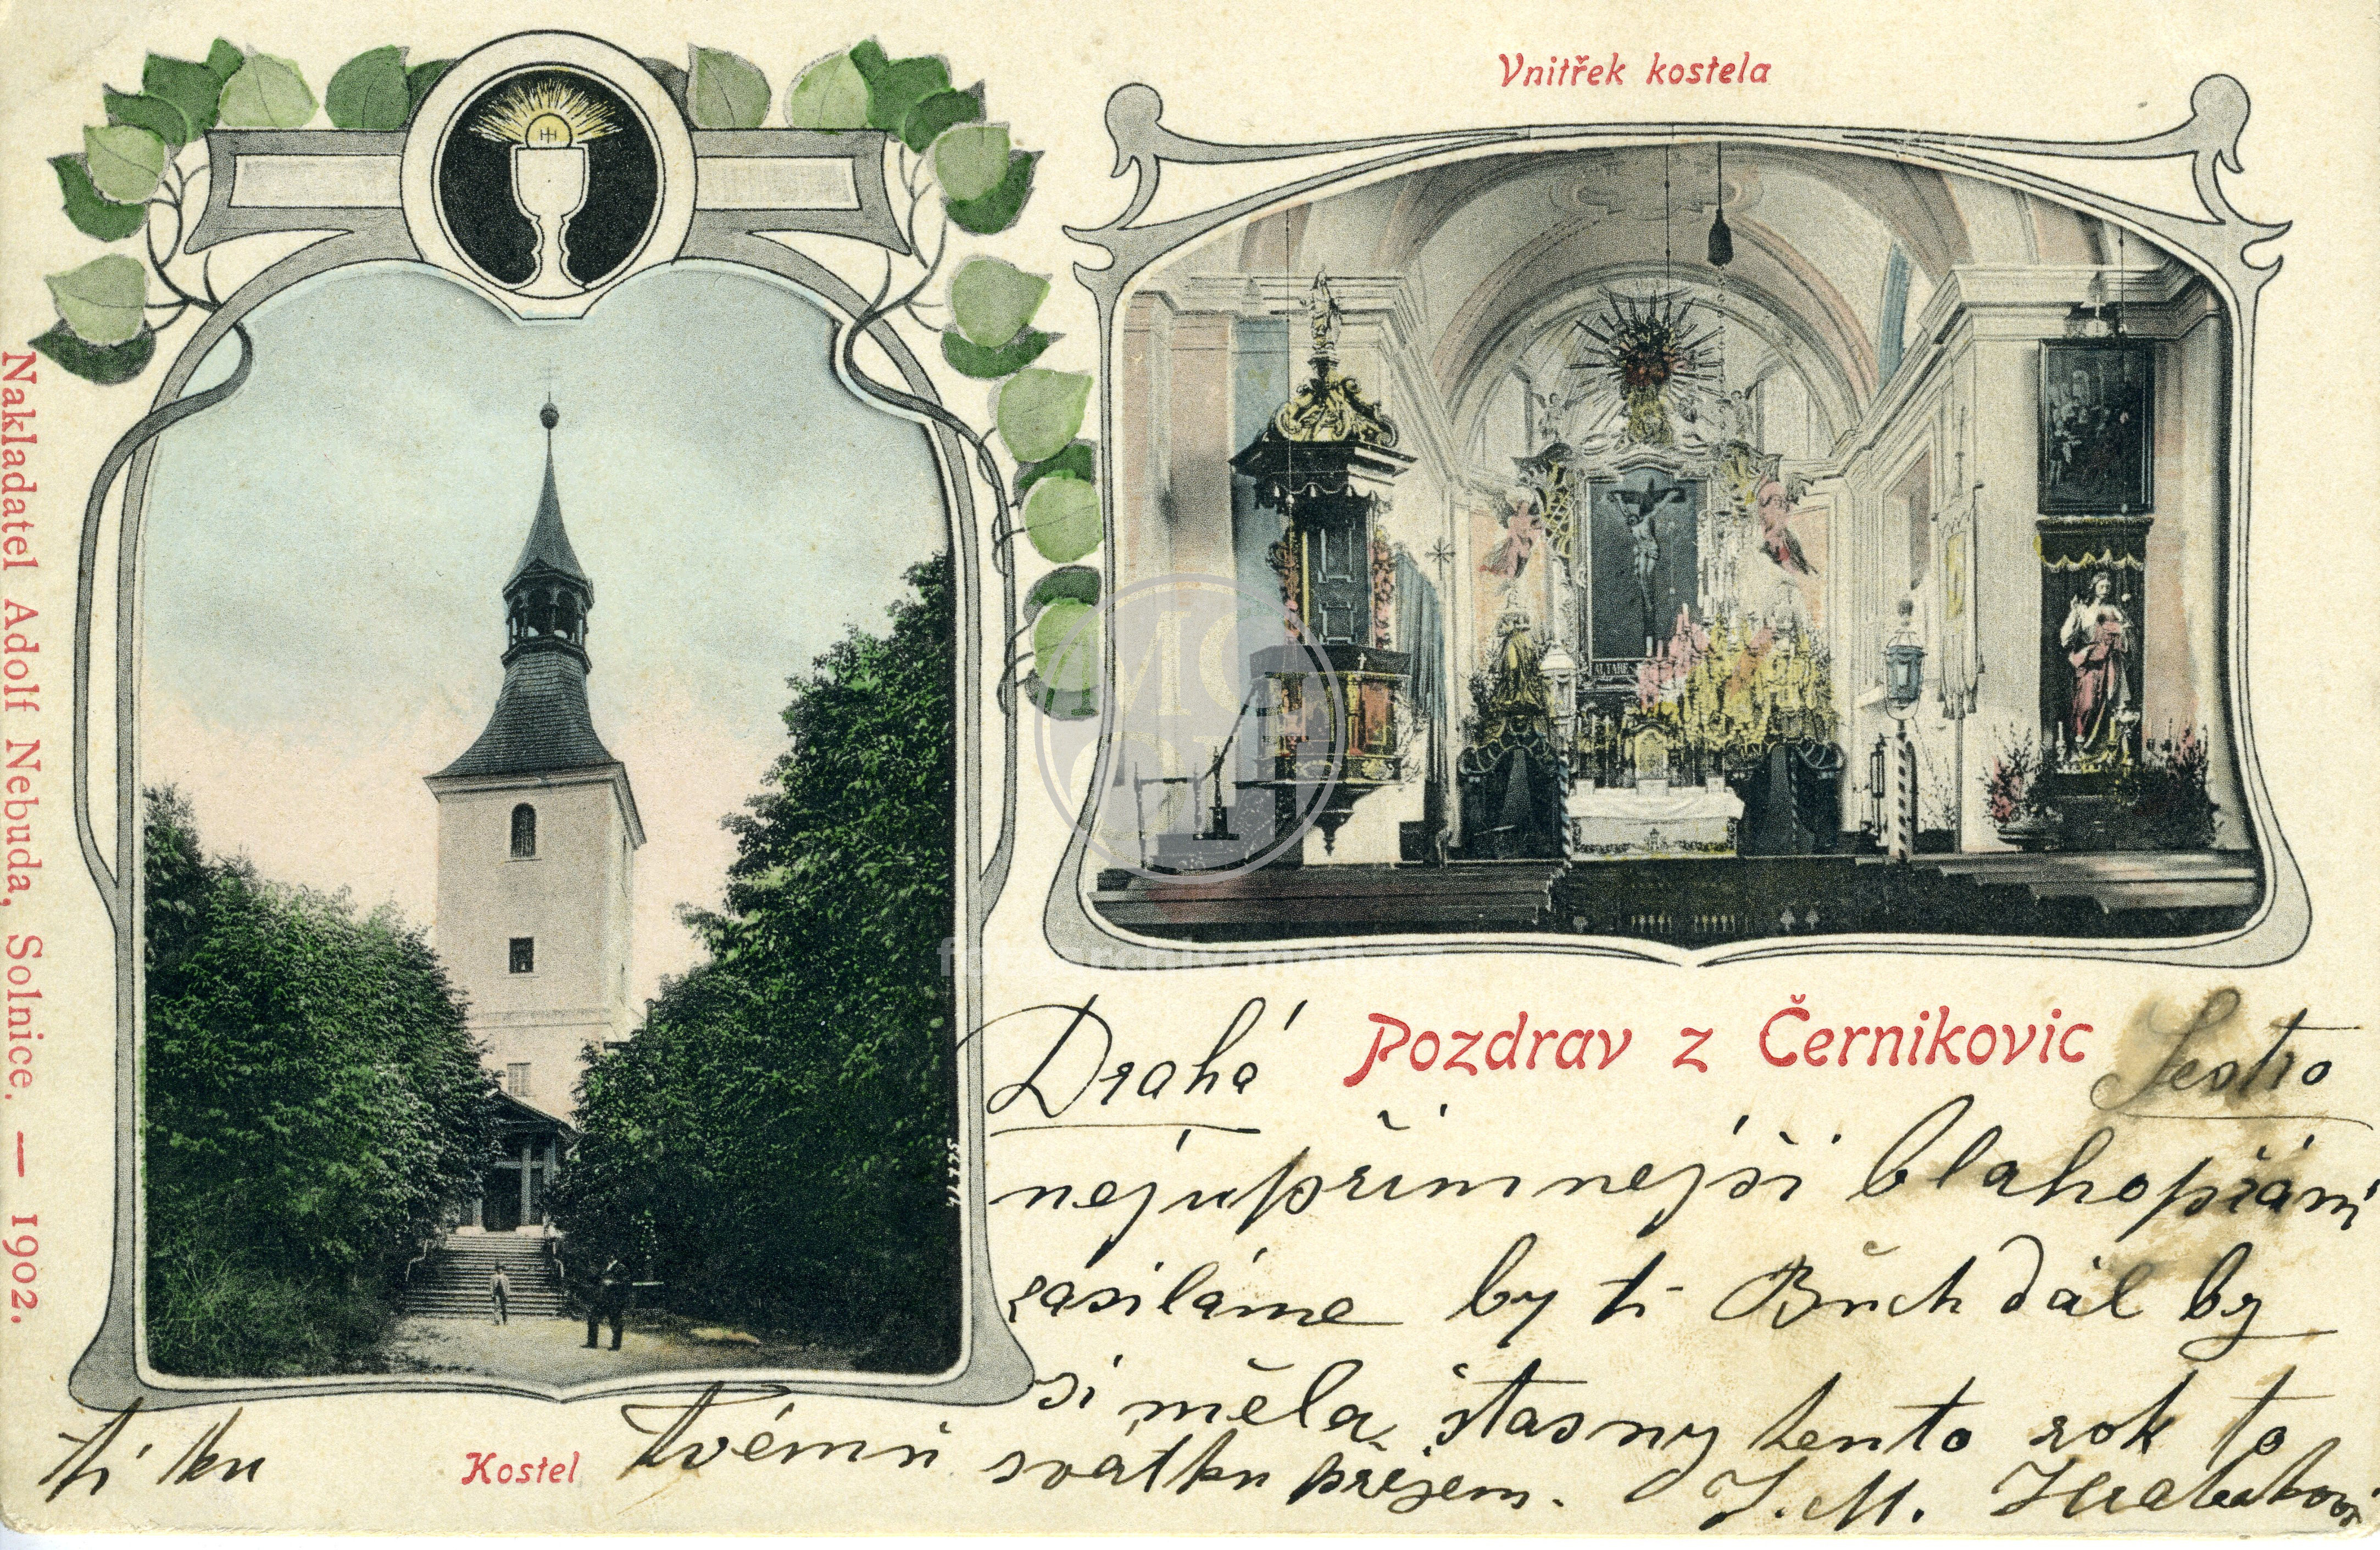 Vnitřek kostela
ALTARE
Nakladatel Adolf Nebuda, Solnice. — 1902.
Pozdrav z Černikovic
Drahá Sestro
nejupřimnejši blahopřání
zasiláme by ti Bůch dál by
si měla štasny tento rok to
ti ku Tvému svátku přejem. J. M.
Kostel